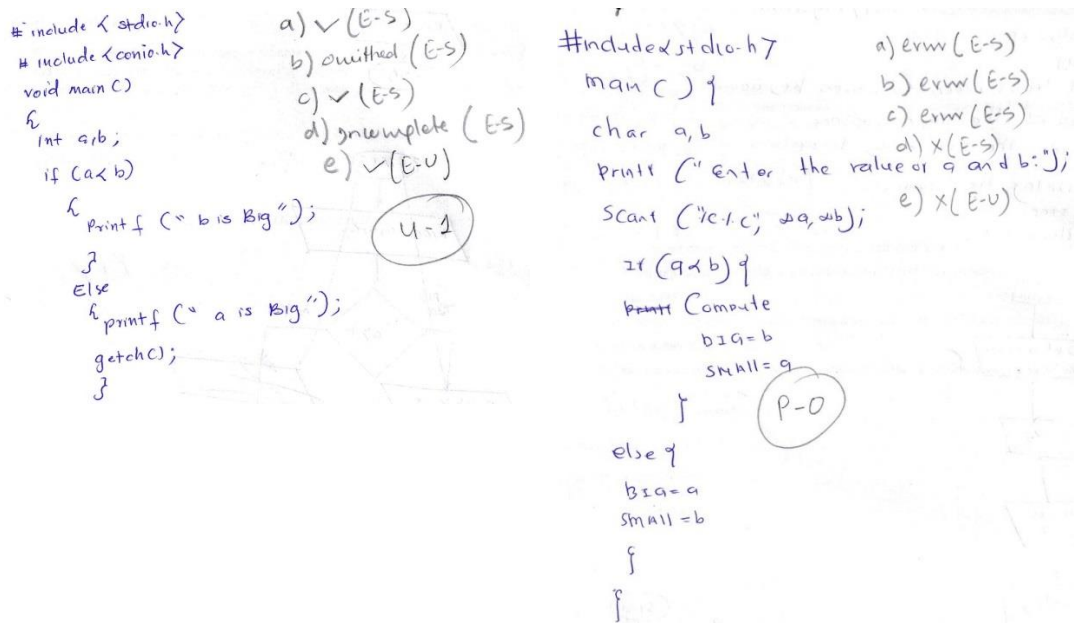 # include < stdio.h>
# include <conio.h>
void main ()
{
int a,b;
if (a<b)
{
Printf (" b is Big");
}
Else
{ printf (" a is Big");
getch();
}
a) ✓ (E-S)
b) omitted (E-S)
c) ✓ (E-S)
d) Incomplete (E-S)
e) ✓ (E-U)
U-1
#include<stdio.h>
main () {
char a,b
printf (" Enter the value of a and b:");
Scanf ("%c%c", &a,&b);
If (a<b) {
Compute
BIG=b
SMAll=a
}
else {
BIG=a
SMAll=b
{
{
a) error (E-S)
b) error (E-S)
c) error (E-S)
d) X (E-S)
e) X (E-U)
P-0